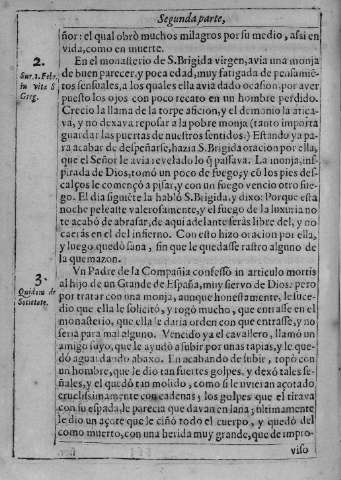 Segunda parte,
ñor: el qual obrò muchos milagros por su medio, assi en
vida, como en muerte.
2.
Sur. 1. Febr.
in vita S.
Greg.
En el monasterio de S. Brigida virgen, avia una monja
de buen parecer, y poca edad, muy fatigada de pensamiẽ-
tos sensuales, a los quales ella avia dado ocasion, por aver
puesto los ojos con poco recato en un hombre perdido.
Crecio la llama de la torpe aficion, y el demonio la atiça-
va, y no dexava reposar a la pobre monja (tanto importa
guardar las puertas de nuestros sentidos.) Estando ya pa-
ra acabar de despeñarse, hazia S. Brigida oracion por ella,
que el Señor le avia revelado lo q̃ passava. La monja, ins-
pirada de Dios, tomó un poco de fuego; y cõ los pies des-
calços le començò a pisar, y con un fuego vencio otro fue-
go. El dia siguiẽte la hablò S. Brigida, y dixo: Porque esta
noche peleaste valerosamente, y el fuego de la luxuria no
te acabò de abrasar, de aqui adelante seràs libre del, y no
caeràs en el del infierno. Con esto hizo oracion por ella,
y luego quedò sana, sin que le quedasse rastro alguno de
la quemazon.
3.
Quidam de
Societate.
Vn Padre de la Compañia confessò in articulo mortis
al hijo de un Grande de España, muy siervo de Dios: pero
por tratar con una monja, aunque honestamente, le suce-
dio que ella le solicitò, y rogò mucho, que entrasse en el
monasterio, que ella le daria orden con que entrasse, y no
seria para mal alguno. Vencido ya el cavallero, llamò un
amigo suyo, que le ayudò a subir por unas tapias, y le que-
dò aguardando abaxo. En acabando de subir, topò con
un hombre, que le dio tan fuertes golpes, y dexò tales se-
ñales, y el quedò tan molido, como si le uvieran açotado
cruelissimamente con cadenas; los golpes que el tirava
con su espada, le parecia que davan en lana; ultimamente
le dio un açote que le ciñò todo el cuerpo, y quedò del
como muerto, con una herida muy grande, que de impro-
viso